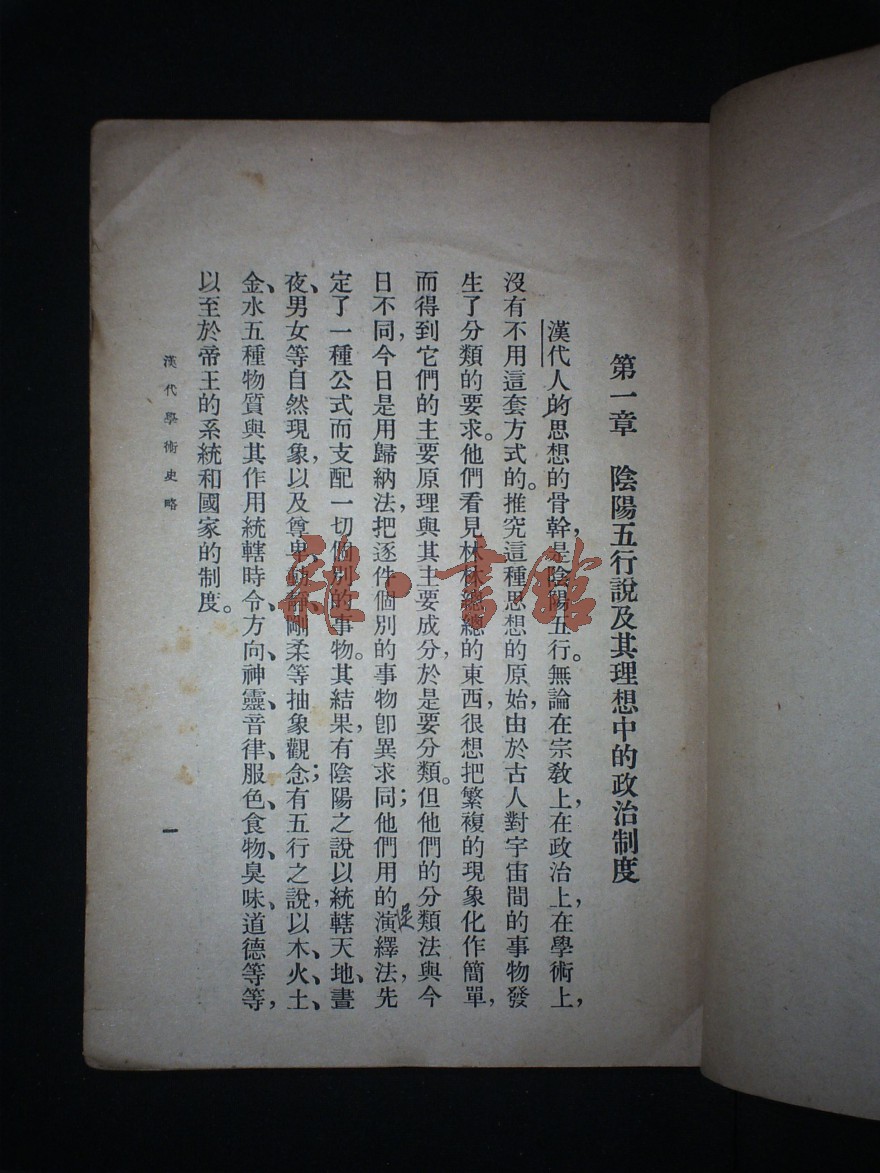 第一章 陰陽五行說及其理想中的政治制度
漢代人的思想的骨幹，是陰陽五行。無論在宗教上，在政治上，在學術上，
沒有不用這套方式的。推究這種思想的原始，由於古人對宇宙間的事物發
生了分類的要求。他們看見林林總總的東西，很想把繁複的現象化作簡單，
而得到它們的主要原理與其主要成分，於是要分類。但他們的分類法與今
日不同，今日是用歸納法，把逐件個別的事物卽異求同；他們用的演繹法，先
是
定了一種公式而支配一切個別的事物。其結果，有陰陽之說以統轄天地、晝
夜、男女等自然現象，以及尊卑、動靜、剛柔等抽象觀念；有五行之說，以木、火、土、
金、水五種物質與其作用統轄時令、方向、神靈、音律、服色、食物、臭味、道德等等，
以至於帝王的系統和國家的制度。
漢代學術史略
一
雜·書館